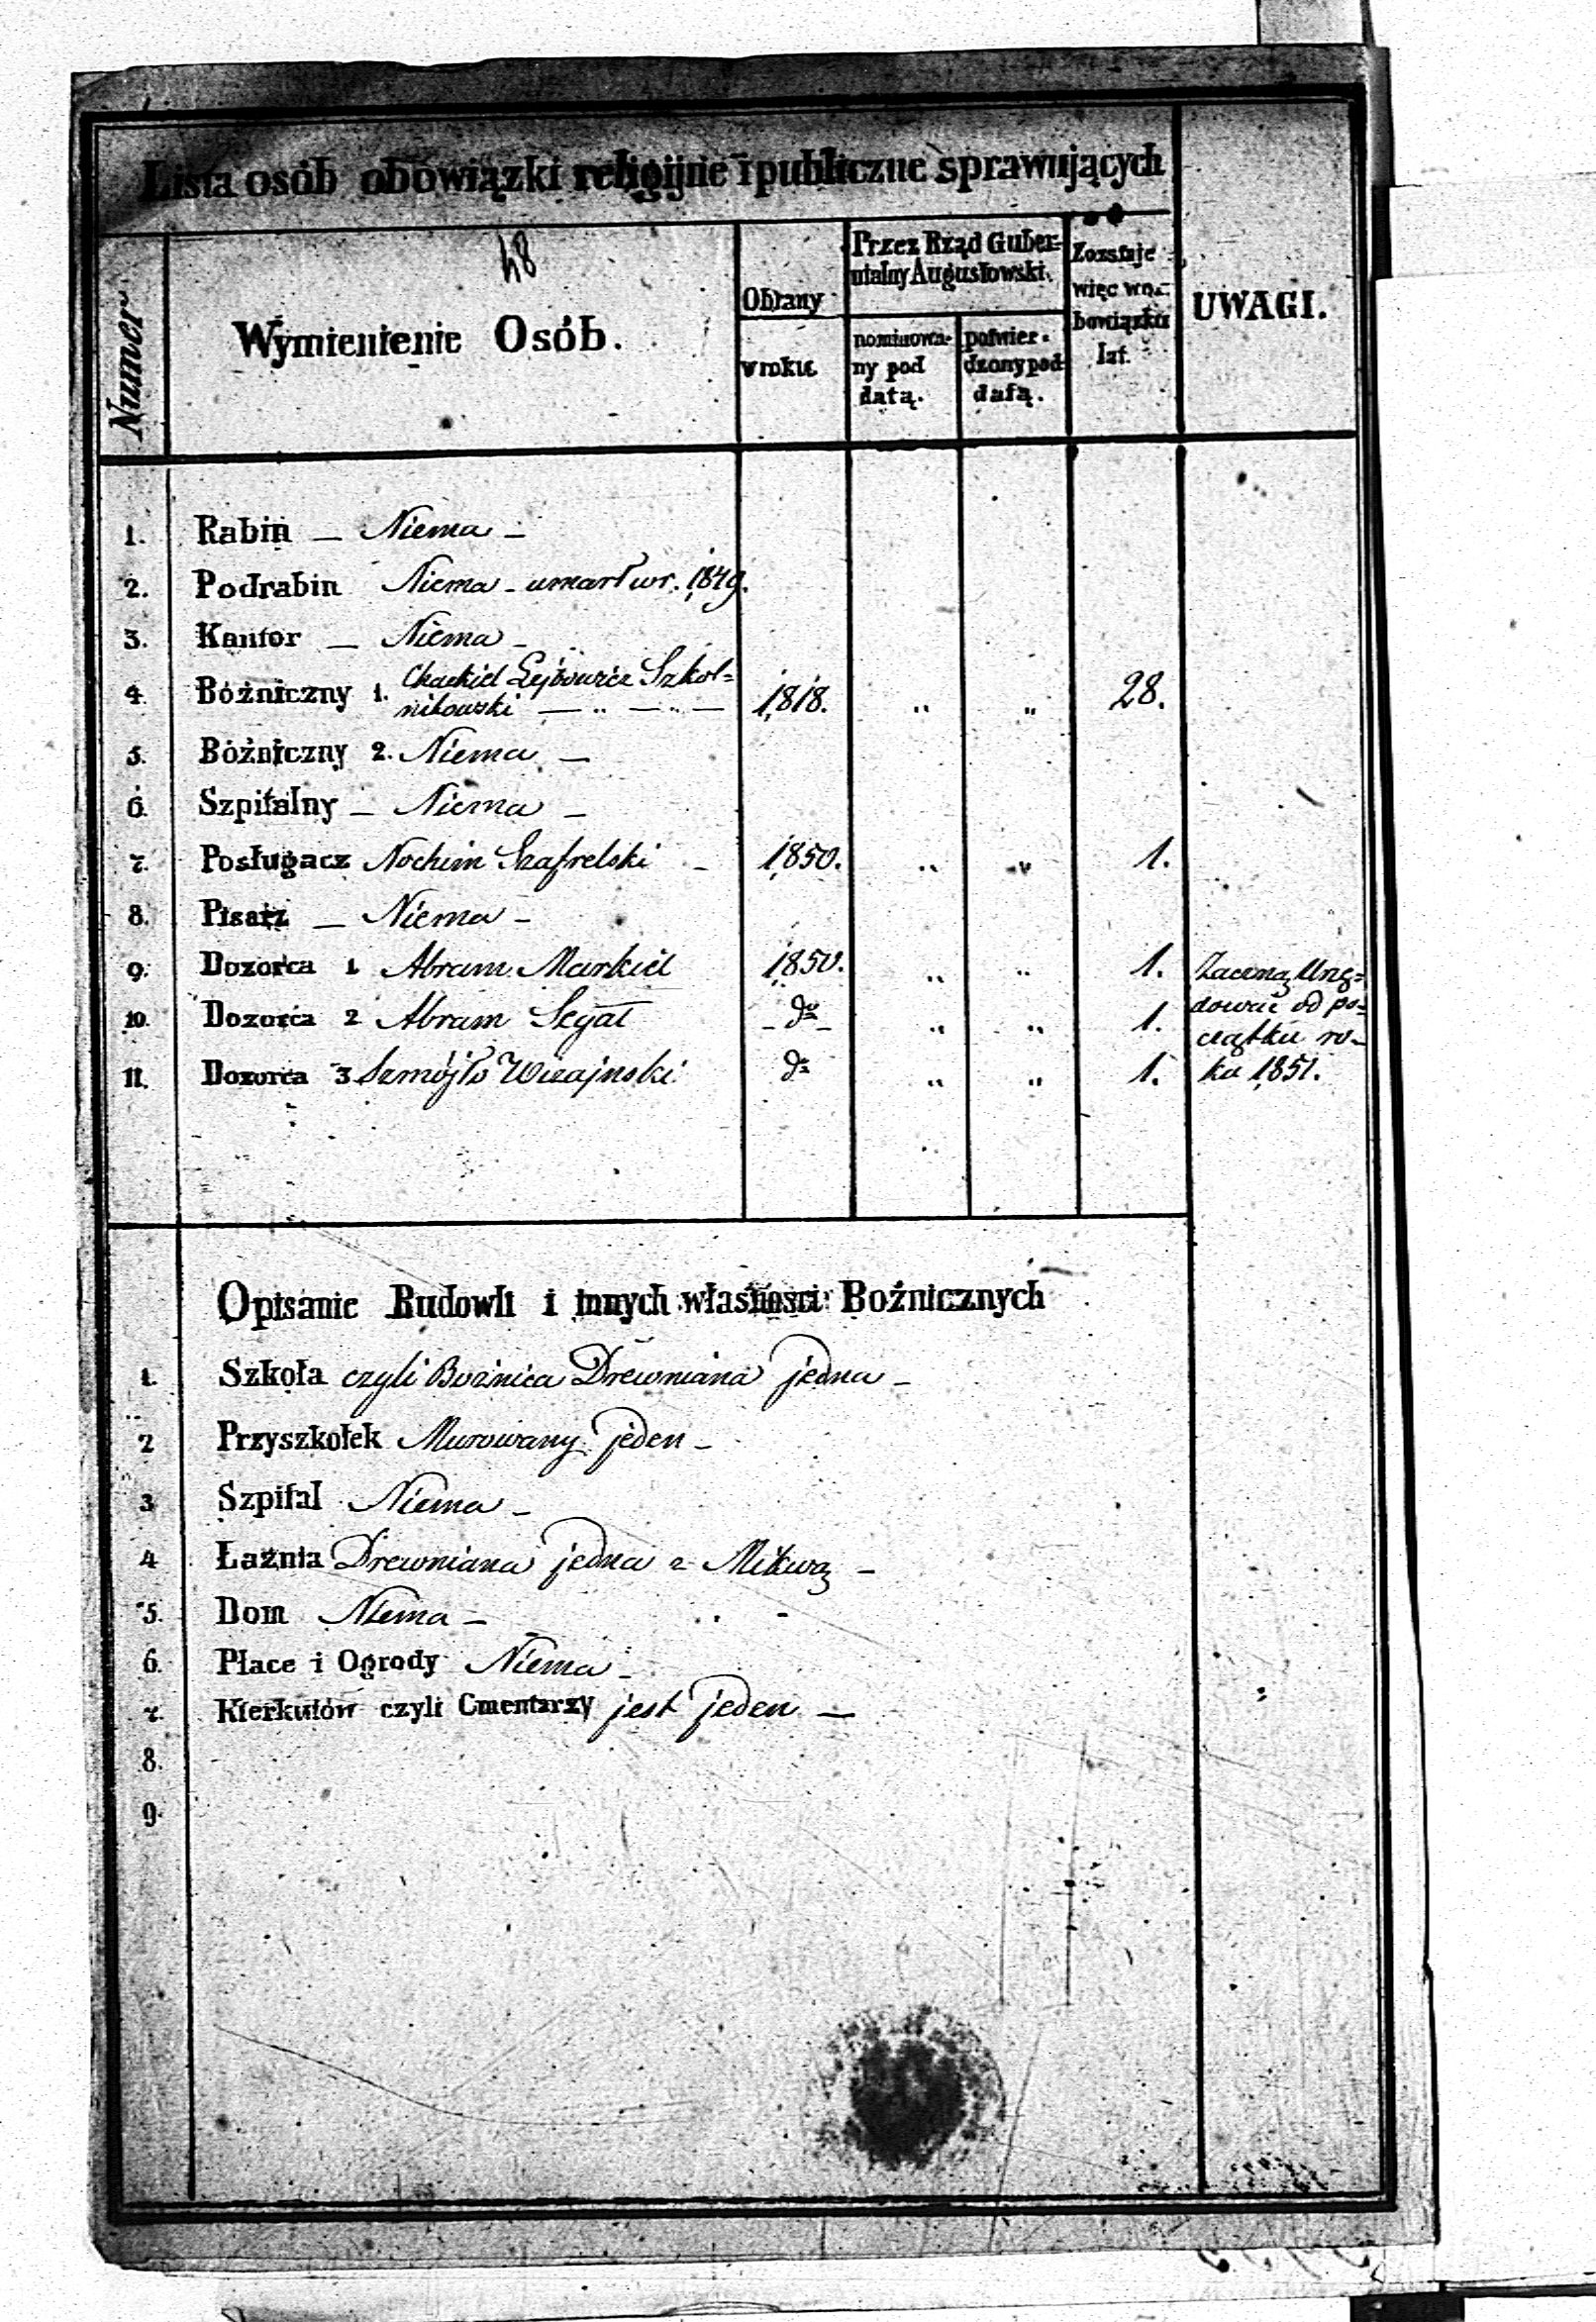 Lista osób obowiązki religijne i publiczne sprawujących
48
Numer
Wymienienie Osób.
Obrany
w roku
Przez Rząd Guber-
nialny Augustowski.
nominowa-
ny pod
datą.
potwier-
dzony pod
datą.
Zostaje
więc w o-
bowiązku
lat.
UWAGI.
1. Rabin — Niema —
2. Podrabin Niema - umarł w r. 1849.
3. Kantor — Niema —
4. Bóżniczny 1. Chackiel Lejbowicz Szkol=
nikowski — " — " — 1818. " " 28.
5. Bóżniczny 2. Niema —
6. Szpitalny — Niema —
7. Posługacz Nochim Szafrelski — 1850. " " 1.
8. Pisarz — Niema —
9. Dozorca 1 Abram Markiel 1850. " " 1. Zaczną Urzę=
10. Dozorca 2 Abram Segal - do - " " 1. dować od po=
czątku ro-
11. Dozorca 3 Szmójło Wizajnski do " " 1. ku 1851.
Opisanie Budowli i innych własności Bożnicznych
1. Szkoła czyli Bożnica Drewniana jedna —
2 Przyszkołek Murowany jeden —
3 Szpital Niema —
4 Łaźnia Drewniana jedna z Mikwą —
5. Dom Niema —
6. Place i Ogrody Niema —
7. Kierkutów czyli Cmentarzy jest jeden —
8.
9.